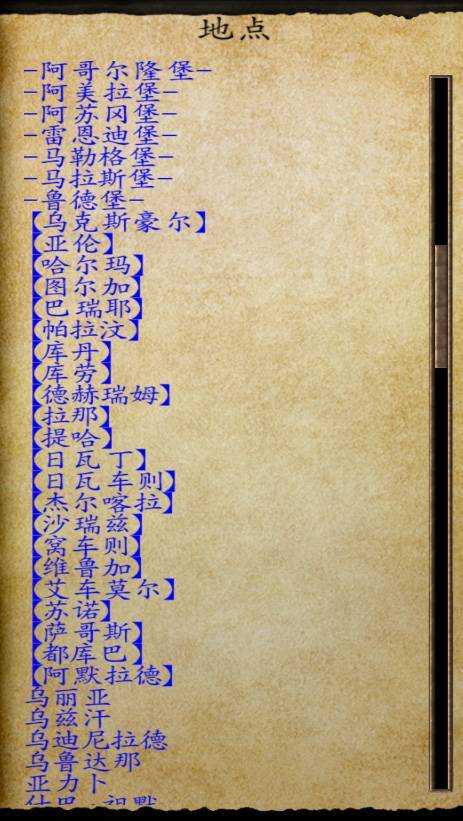 地点
-阿哥尔隆堡-
-阿美拉堡-
-阿苏冈堡-
-雷恩迪堡-
-马勒格堡-
-马拉斯堡-
-鲁德堡-
【乌克斯豪尔】
【亚伦】
【哈尔玛】
【图尔加】
【巴瑞耶】
【帕拉汶】
【库丹】
【库劳】
【德赫瑞姆】
【拉那】
【提哈】
【日瓦丁】
【日瓦车则】
【杰尔喀拉】
【沙瑞兹】
【窝车则】
【维鲁加】
【艾车莫尔】
【苏诺】
【萨哥斯】
【都库巴】
【阿默拉德】
乌丽亚
乌兹汗
乌迪尼拉德
乌鲁达那
亚力卜